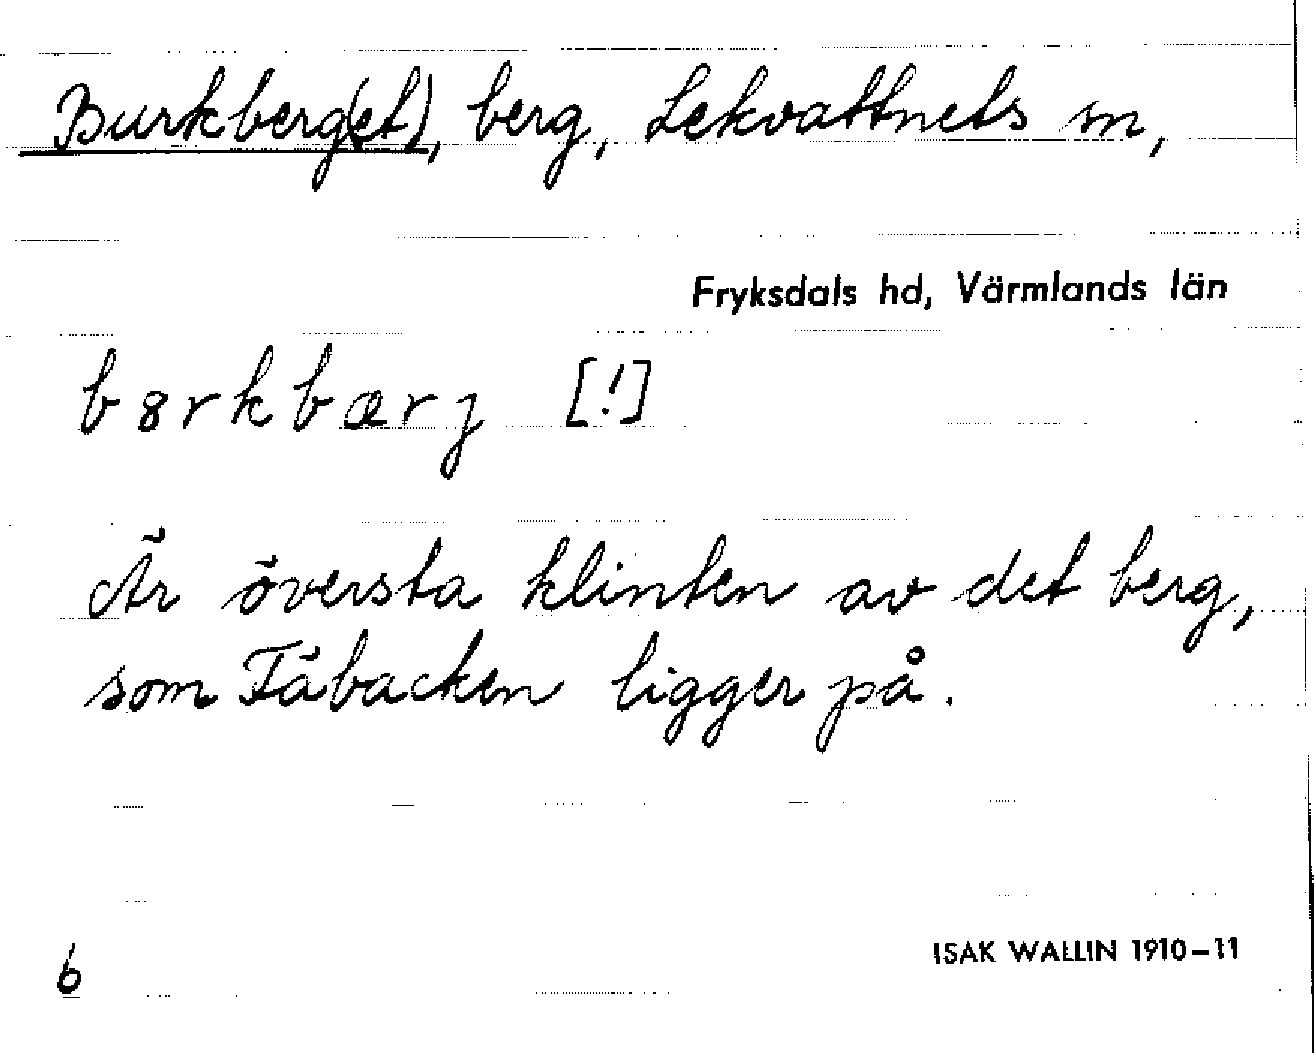 Burkberg(et), berg, Lekvattnets sn,
Fryksdals hd, Värmlands län
b8rkbærj [!]
Är översta klinten av det berg,
som Fäbacken ligger på.
6
ISAK WALLIN 1910–11